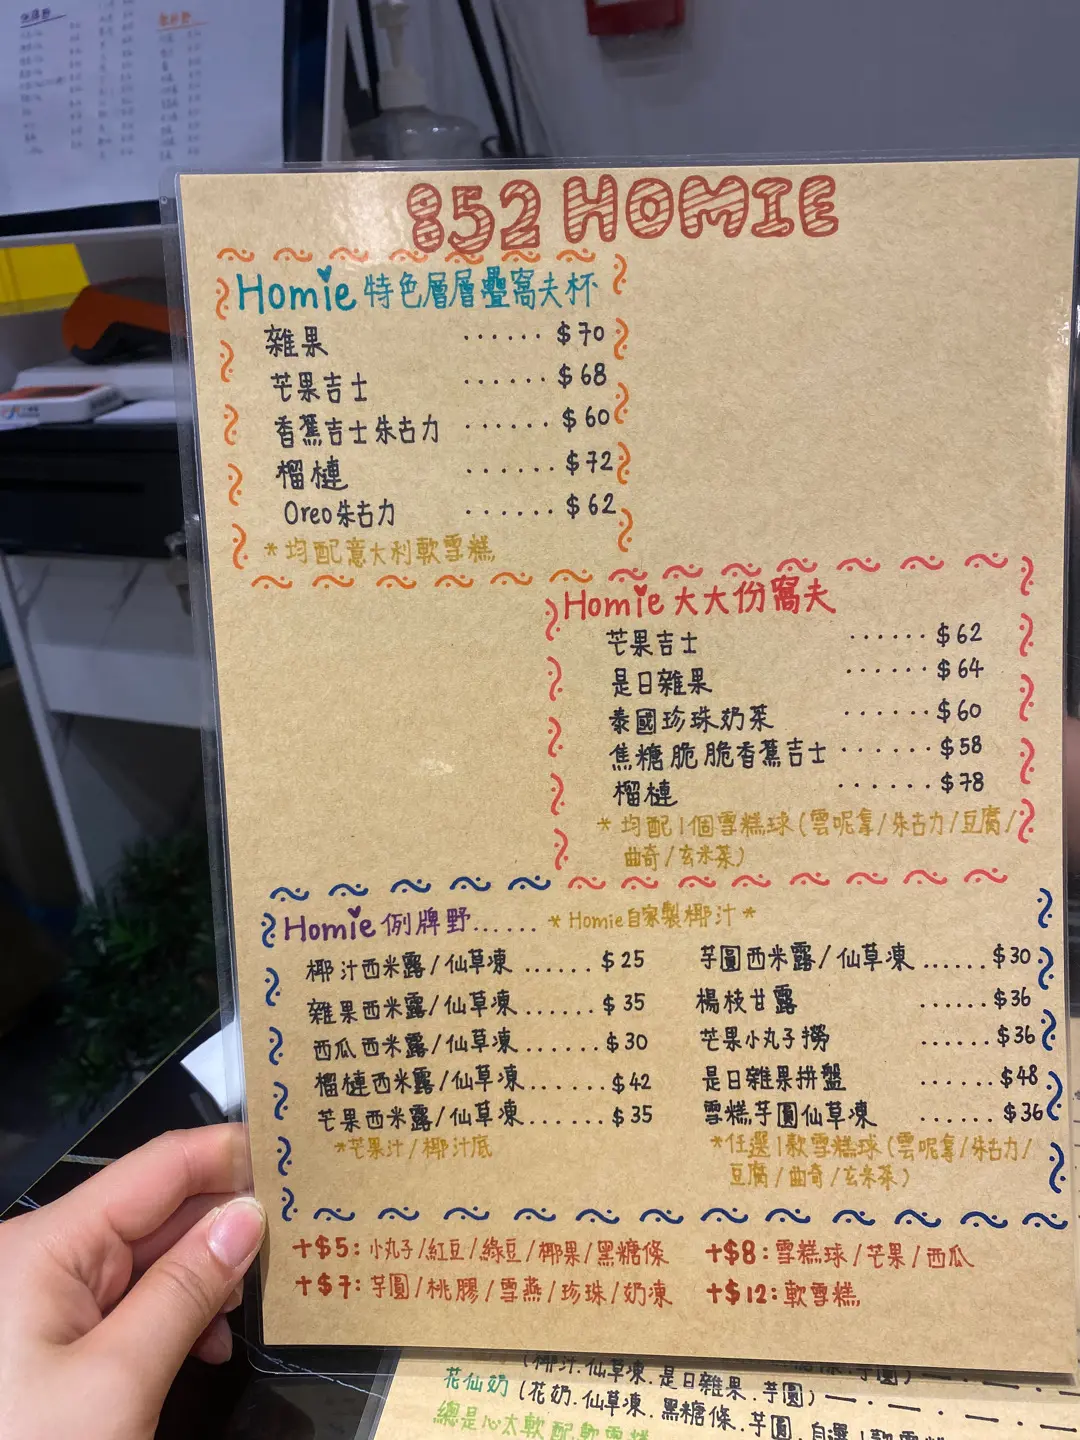 852 HOMIE
Homie 特色層層疊窩夫杯
雜果 ...... $70
芒果吉士 ...... $68
香蕉吉士朱古力 ...... $60
榴槤 ...... $72
Oreo朱古力 ...... $62
*均配意大利軟雪糕
Homie 大大份窩夫
芒果吉士 ...... $62
是日雜果 ...... $64
泰國珍珠奶茶 ...... $60
焦糖脆脆香蕉吉士 ...... $58
榴槤 ...... $78
*均配1個雪糕球(雲呢拿/朱古力/豆腐/
曲奇/玄米茶)
Homie 例牌野...... *Homie自家製椰汁*
椰汁西米露/仙草凍 ...... $25
雜果西米露/仙草凍 ...... $35
西瓜西米露/仙草凍 ...... $30
榴槤西米露/仙草凍 ...... $42
芒果西米露/仙草凍 ...... $35
*芒果汁/椰汁底
芋圓西米露/仙草凍 ...... $30
楊枝甘露 ...... $36
芒果小丸子撈 ...... $36
是日雜果拼盤 ...... $48
雪糕芋圓仙草凍 ...... $36
*任選1款雪糕球(雲呢拿/朱古力/
豆腐/曲奇/玄米茶)
+$5:小丸子/紅豆/綠豆/椰果/黑糖條
+$7:芋圓/桃膠/雪燕/珍珠/奶凍
+$8:雪糕球/芒果/西瓜
+$12:軟雪糕
(椰汁.仙草凍.是日雜果.芋圓)
花仙奶(花奶.仙草凍.黑糖條.芋圓.自選1款雪糕
總是心太軟配軟雪糕